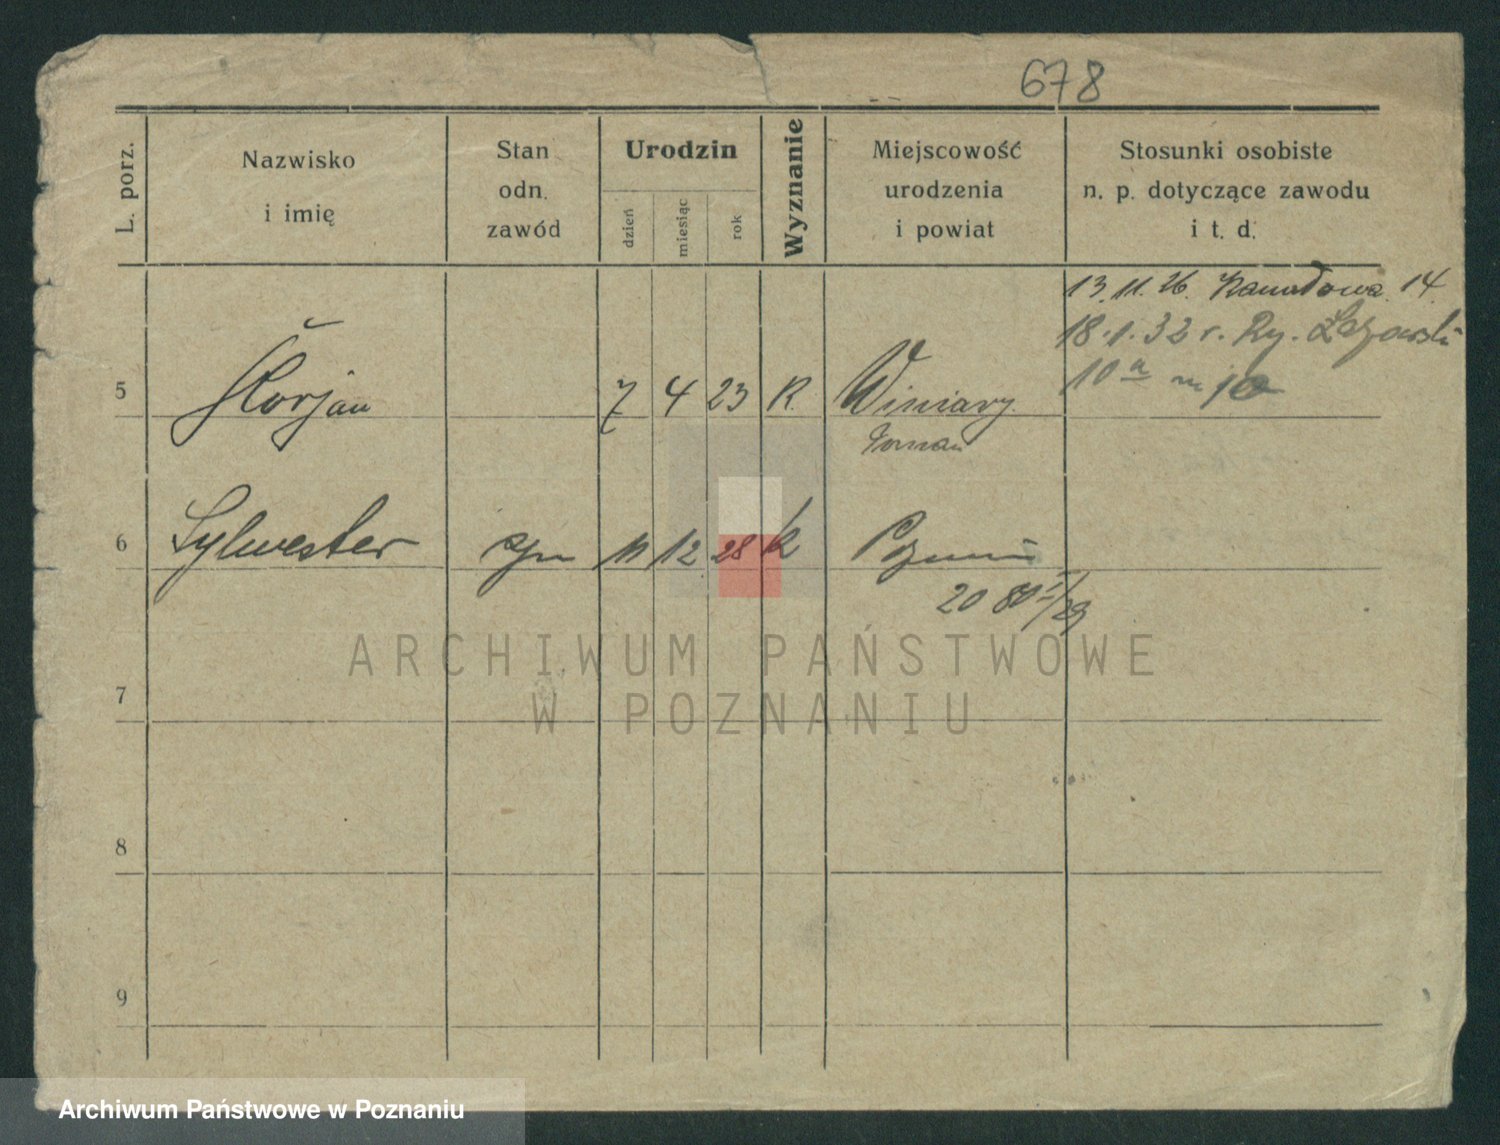 678
L. porz.
Nazwisko
i imię
Stan
odn.
zawód
Urodzin
dzień
miesiąc
rok
Wyznanie
Miejscowość
urodzenia
i powiat
Stosunki osobiste
n. p. dotyczące zawodu
i t. d.
13. 11. 26. 14.
18.1.32 r. Ry. Łazarski
10a m 10
5 Florjan 7 4 23 K. Winiary
Poznań
6 Sylwester syn 11 12 28 K Poznań
20 80
7
8
9
ARCHIWUM PAŃSTWOWE
W POZNANIU
Archiwum Państwowe w Poznaniu